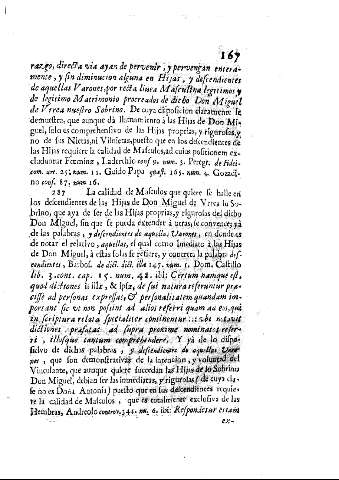 167
razgo, directa via ayan de pervenir, y pervengan entera-
mente, y sin diminucion alguna en Hijas, y descendientes
de aquellas Varones, por recta linea Masculina legitimos y
de legitimo Matrimonio procreados de dicho Don Miguel
de Vrrea nuestro Sobrino. De cuya disposicion claramente se
demuestra, que aunque dà llamamiento à las Hijas de Don Mi-
guel, solo es comprehensivo de las Hijas proprias, y rigurosas, y
no de sus Nietas, ni Visnietas, puesto que en los descendientes de
las Hijas requiere la calidad de Masculos, ad cuius positionem ex-
cluduntur Fœminæ, Laderchio conf. 9. num. 3. Peregr. de fidei-
com. art. 25. num. 11. Guido Papa quæst. 165. num. 4. Gozadi-
no conf. 87. num 16.
287 La calidad de Masculos que quiere se halle en
los descendientes de las Hijas de Don Miguel de Vrrea su So-
brino, que aya de ser de las Hijas proprias, y rigurosas del dicho
Don Miguel, sin que se pueda extender à otras, se convence yà
de las palabras, y descendientes de aquellas Varones, en donde es
de notar el relativo, aquellas, el qual como mediato à las Hijas
de Don Miguel, à estas solo se refiere, y concreta, la palabra des-
cendientes, Barbos. de dict. dict. 147. num. 5. Dom. Castillo
lib. 3. cont. cap. 15. num. 42. ibi: Certum namque est,
quod dictiones is ille, & ipse, de sui natura referuntur præ-
cisse ad personas expressas, & personalitatem quandam im-
portant sic ve non possint ad alios referri quam ad eos, qui
in scriptura relata specialiter continentur
dictiones præfatas ad supra proxime nominatas refer-
ri, illosque tantum comprehendere. Y yà de lo dispo-
sitivo de dichas palabras, y descendientes de aquellas Varo-
nes, que son demonstrativas de la intencion, y voluntad del
Vinculante, que aunque quiere sucedan las Hijas de lo Sobrino
Don Miguel, debian ser las inmediatas, y rigurosas (de cuya cla-
se no es Doña Antonia) puesto que en sus descendientes requie-
re la calidad de Masculos, que es totalmente exclusiva de las
Hembras, Andreolo controv. 341. num. 6. ibi: Respondetur etiam
ex-